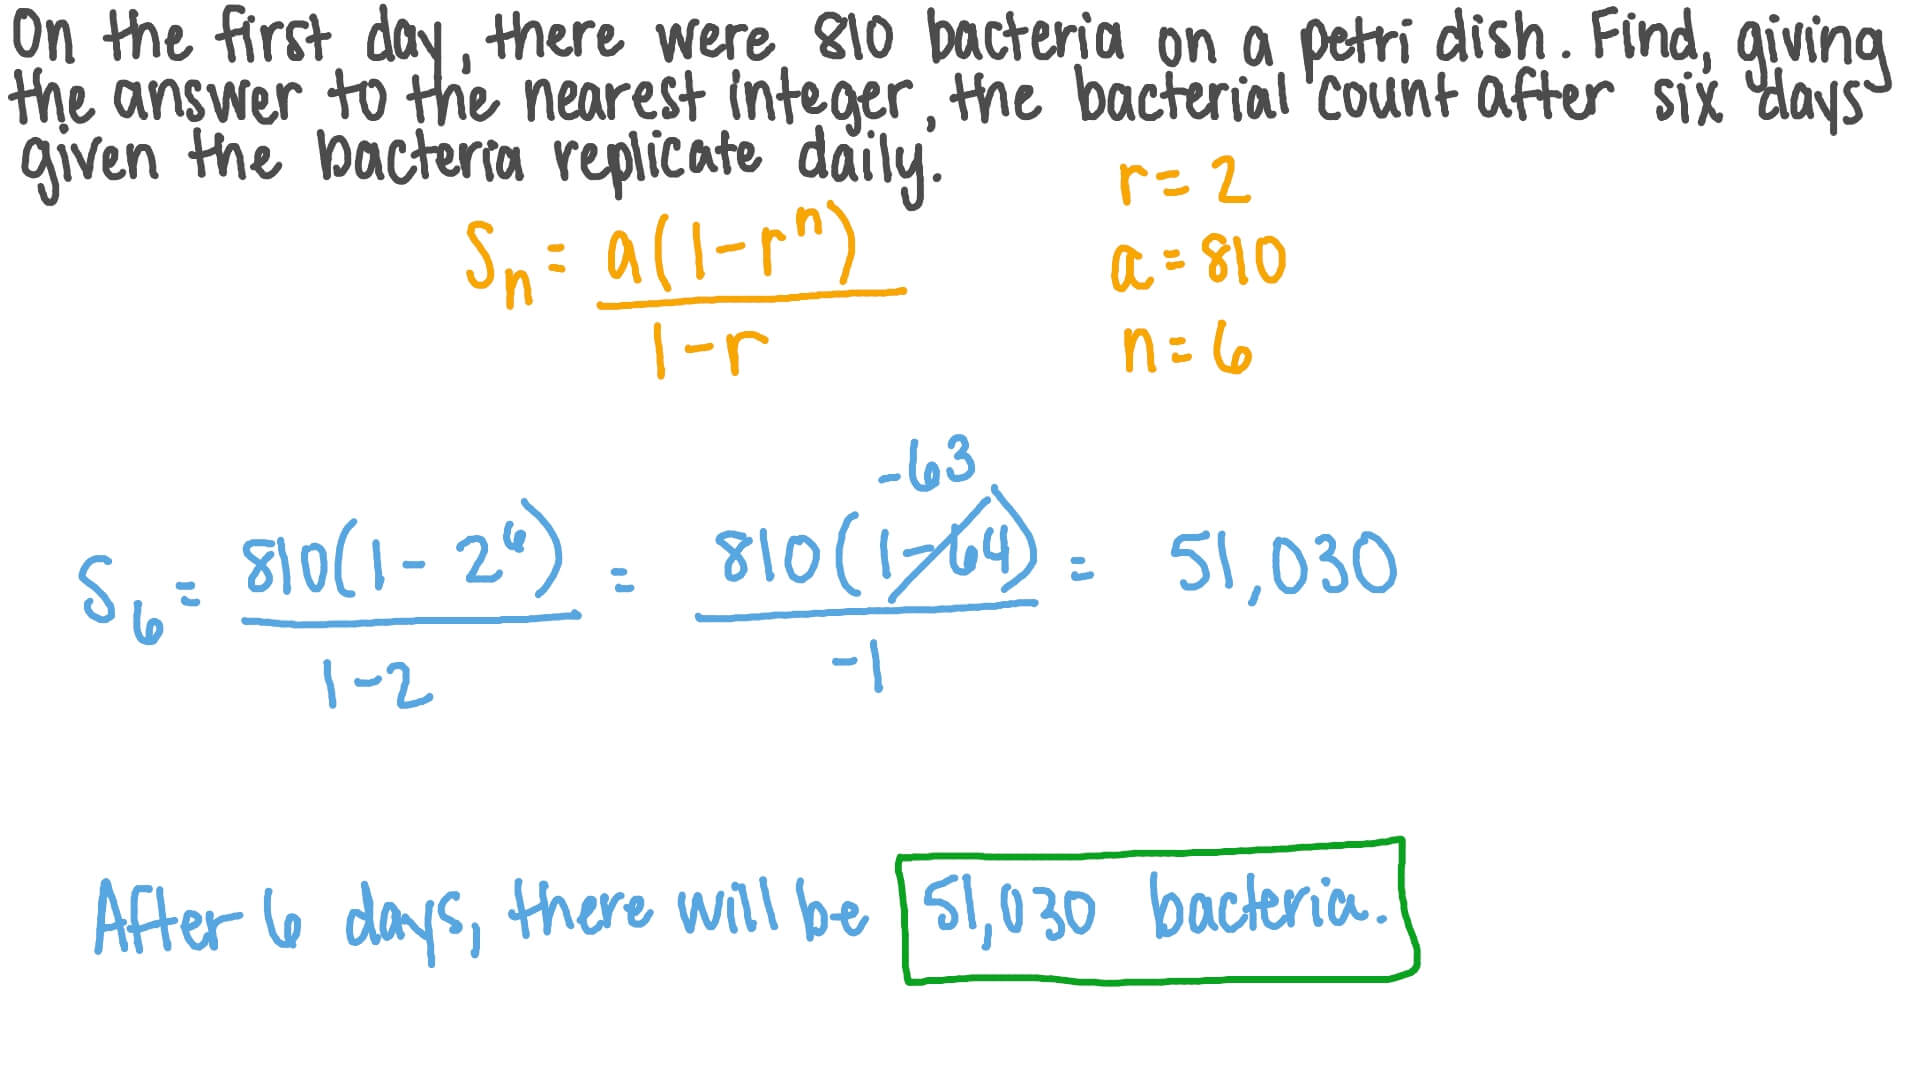 On the first day, there were 810 bacteria on a petri dish. Find, giving
the answer to the nearest integer, the bacterial count after six days
given the bacteria replicate daily.
r = 2
Sn = a(1-r^n) / 1-r
a = 810
n = 6
-63
S6 = 810(1-2^6) / 1-2 = 810(1-64) / -1 = 51,030
After 6 days, there will be 51,030 bacteria.